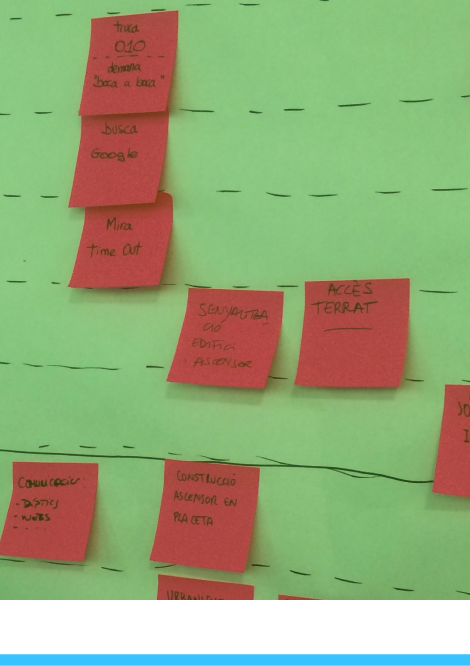 truca
010
demana
"boca a boca"
busca
Google
Mira
Time Out
SENYALITZA
CIÓ
EDIFICI
ASCENSOR
ACCÈS
TERRAT
COMUNICACIÓ:
- WEBS
CONSTRUCCIÓ
ASCENSOR EN
PLACETA